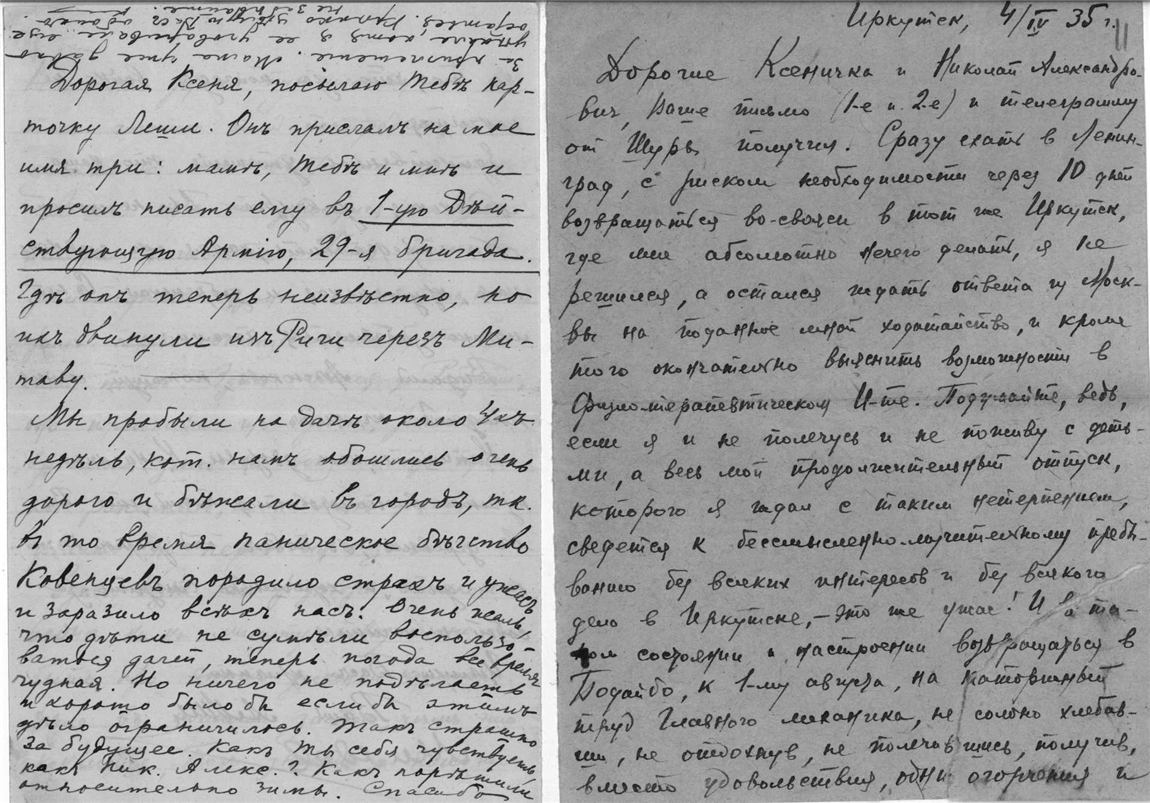 Дорогая Ксеня, посылаю Тебѣ кар-
точку Леши. Онъ прислалъ на мое
имя три: мамѣ, Тебѣ и мнѣ и
просилъ писать ему въ 1-ую Дѣй-
ствующую Армію, 29-я бригада.
Гдѣ онъ теперь неизвѣстно, но
ихъ двинули изъ Риги черезъ Ми-
таву.
Мы пробыли на дачѣ около 4хъ
недѣль, кот. намъ обошлись очень
дорого и бѣжали въ городъ, т.к.
въ то время паническое бѣгство
Ковенцевъ породило страхъ и ужасъ
и заразило всѣхъ насъ. Очень жаль,
что дѣти не сумѣли воспользо-
ваться дачей, теперь погода все время
чудная. Но ничего не подѣлаешь
и хорошо было бы если бы этимъ
дѣло ограничилось. Такъ страшно
за будущее. Какъ ты себя чувствуешь,
какъ Ник. Алекс.? Какъ порѣшили
относительно зимы. Спасибо
за приглашение. Мама уже давно
уехала, хотя я ее уговаривала еще
остаться. Крепко целую Васъ обоихъ.
не забывайте.
Иркутск, 4/IV 35 г.
11
Дорогие Ксеничка и Николай Александро-
вич, Ваше письмо (1-е и 2-е) и телеграмму
от Шуры получил. Сразу ехать в Ленин-
град, с риском необходимости через 10 дней
возвращаться во-свояси в тот же Иркутск,
где мне абсолютно нечего делать, я не
решился, а остался ждать ответа из Моск-
вы на поданное мной ходатайство, и кроме
того окончательно выяснить возможности в
Физио-терапевтическом И-те. Подумайте, ведь,
если я и не полечусь и не поживу с деть-
ми, а весь мой продолжительный отпуск,
которого я ждал с таким нетерпением,
сведется к бессмысленно-мучительному пребы-
ванию без всяких интересов и без всякого
дела в Иркутске, – это же ужас! И в та-
ком состоянии и настроении возвращаться в
Бодайбо, к 1-му августа, на каторжный
труд Главного механика, не солоно хлебав-
ши, не отдохнув, не полечившись, получив,
вместо удовольствия, одни огорчения и